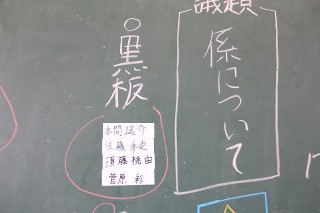 議題
係について
黒板
本間遥介
佐藤
須藤桃由
菅原 彩